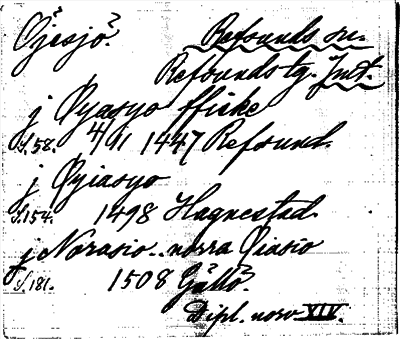 Öjesjö. Refsunds sn.
Refsunds tg. Jmt.
j Øyasyo ffiske
S. 58. 4/11 1447 Refsund.
j Øyiasyo
S. 154. 1498 Hagnestad.
j Norasio.. norra Øiasio
S. 181. 1508 Gällö.
Dipl. norv. XIV.